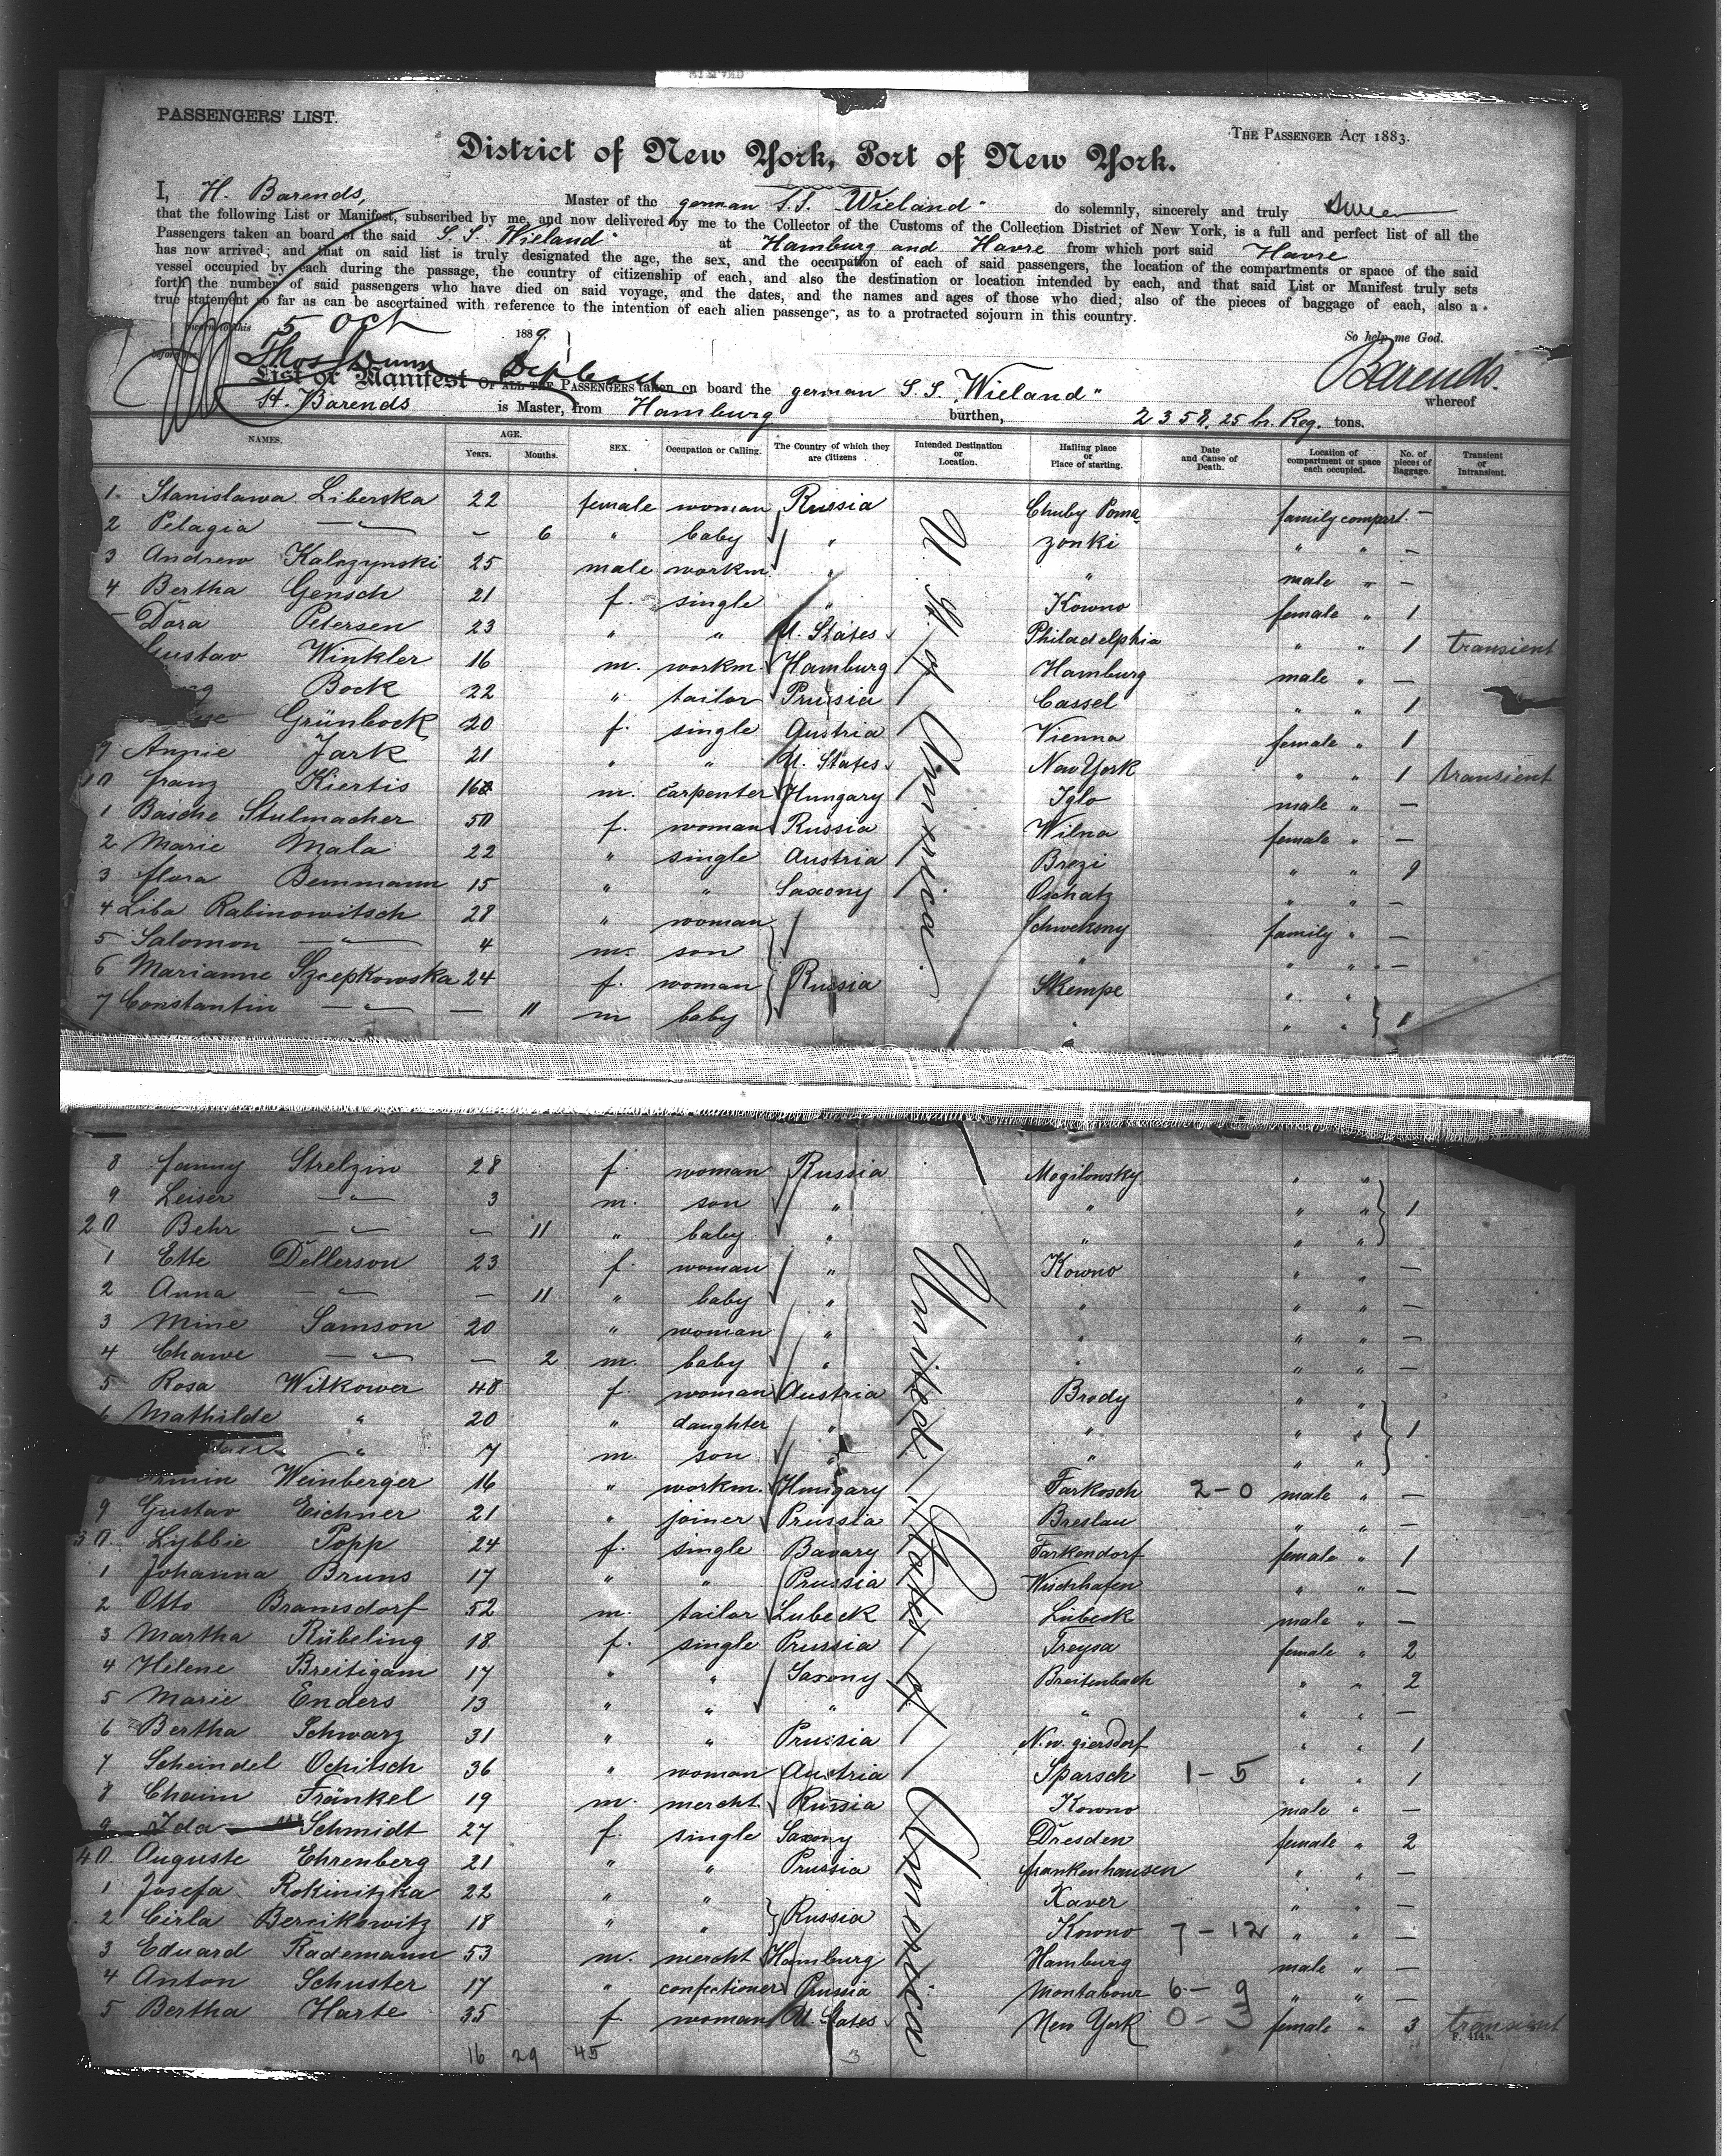 PASSENGERS' LIST.
THE PASSENGER ACT 1883.
District of New York, Port of New York.
I, H. Barends, Master of the german S.S. "Wieland" do solemnly, sincerely and truly swear
that the following List or Manifest, subscribed by me, and now delivered by me to the Collector of the Customs of the Collection District of New York, is a full and perfect list of all the
Passengers taken on board of the said S.S. "Wieland" at Hamburg and Havre from which port said Havre
has now arrived; and that on said list is truly designated the age, the sex, and the occupation of each of said passengers, the location of the compartments or space of the said
vessel occupied by each during the passage, the country of citizenship of each, and also the destination or location intended by each, and that said List or Manifest truly sets
forth the number of said passengers who have died on said voyage, and the dates, and the names and ages of those who died; also of the pieces of baggage of each, also a
true statement so far as can be ascertained with reference to the intention of each alien passenger, as to a protracted sojourn in this country.
Sworn to this 5 Oct 1889. So help me God.
before me Thos Dunn Barends.
List or Manifest OF ALL THE PASSENGERS taken on board the german S.S. "Wieland" whereof
H. Barends is Master, from Hamburg burthen, 2358,25 br. Reg. tons.
NAMES. AGE. Years. Months. SEX. Occupation or Calling. The Country of which they are Citizens Intended Destination or Location. Hailing place or Place of starting. Date and Cause of Death. Location of compartment or space each occupied. No. of pieces of Baggage. Transient or Intransient.
1. Stanislawa Liberska 22 female woman Russia Chuby Poma- family compart. —
2 Pelagia —"— – 6 " baby " zonki " " —
3 Andrew Kalczynski 25 male workm. " " male " —
4 Bertha Gensch 21 f. single " Kowno female " 1
Dora Petersen 23 " " U. States Philadelphia " " 1 transient
Gustav Winkler 16 m. workm. Hamburg Hamburg male " —
Bock 22 " tailor Prussia Cassel " " 1
Grünbock 20 f. single Austria Vienna female " 1
9 Annie Jark 21 " " U. States New York " " 1 transient
10 Franz Kiertis 16 m. carpenter Hungary Iglo male " —
1 Basche Stulmacher 50 f. woman Russia Wilna female " —
2 Marie Mala 22 " single Austria Brezi " " 1
3 Flora Bemmann 15 " " Saxony Oschatz " " —
4 Liba Rabinowitsch 28 " woman Schweksny family " —
5 Salomon —"— 4 m. son " " " —
6 Marianne Szcepkowska 24 f. woman Russia Skempe " "
7 Constantin —"— — 11 m baby " " " 1
U. St. of America.
8 Fanny Strelzin 28 f. woman Russia Mogilowsky " "
9 Leiser —"— 3 m. son " " " " 1
20 Behr —"— – 11 " baby " " " "
1 Ette Dellerson 23 f. woman " Kowno " " —
2 Anna —"— — 11 " baby " " " " —
3 Mine Samson 20 " woman " " " " —
4 Chawe —"— — 2 m. baby " " " " —
5 Rosa Witkower 48 f. woman Austria Brody " "
6 Mathilde " 20 " daughter " " " " 1
" 7 m. son " " " "
8 Armin Weinberger 16 " workm. Hungary Farkosch 2-0 male " —
9 Gustav Eichner 21 " joiner Prussia Breslau " " —
30 Lybbie Popp 24 f. single Bavary Farkendorf female " 1
1 Johanna Bruns 17 " " Prussia Wischhafen " " —
2 Otto Bramsdorf 52 m. tailor Lubeck Lübeck male " —
3 Martha Rübeling 18 f. single Prussia Treysa female " 2
4 Helene Breitigam 17 " " Saxony Breitenbach " " 2
5 Marie Enders 13 " " " " " " —
6 Bertha Schwarz 31 " " Prussia N.w. giersdorf " " 1
7 Scheindel Ochitsch 36 " woman Austria Sparsch 1-5 " " 1
8 Chaim Fränkel 19 m. mercht. Russia Kowno male " —
9 Ida Schmidt 27 f. single Saxony Dresden female " 2
40 Auguste Ehrenberg 21 " " Prussia Frankenhausen " " —
1 Josefa Rokinitzka 22 " " Xaver " " —
2 Cirla Bercikowitz 18 " " Russia Kowno 7-12 " " —
3 Eduard Rademann 53 m. mercht Hamburg Hamburg male " —
4 Anton Schuster 17 " confectioner Prussia Montabour 6-9 " " —
5 Bertha Harte 35 f. woman U. States New York 0-3 female " 3 transient
United States of America
F. 414a.
16 29 45 3